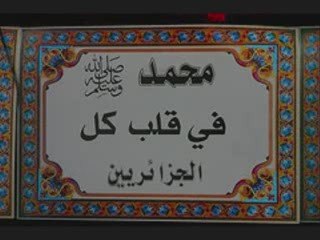 محمد ﷺ
في قلب كل
الجزائريين